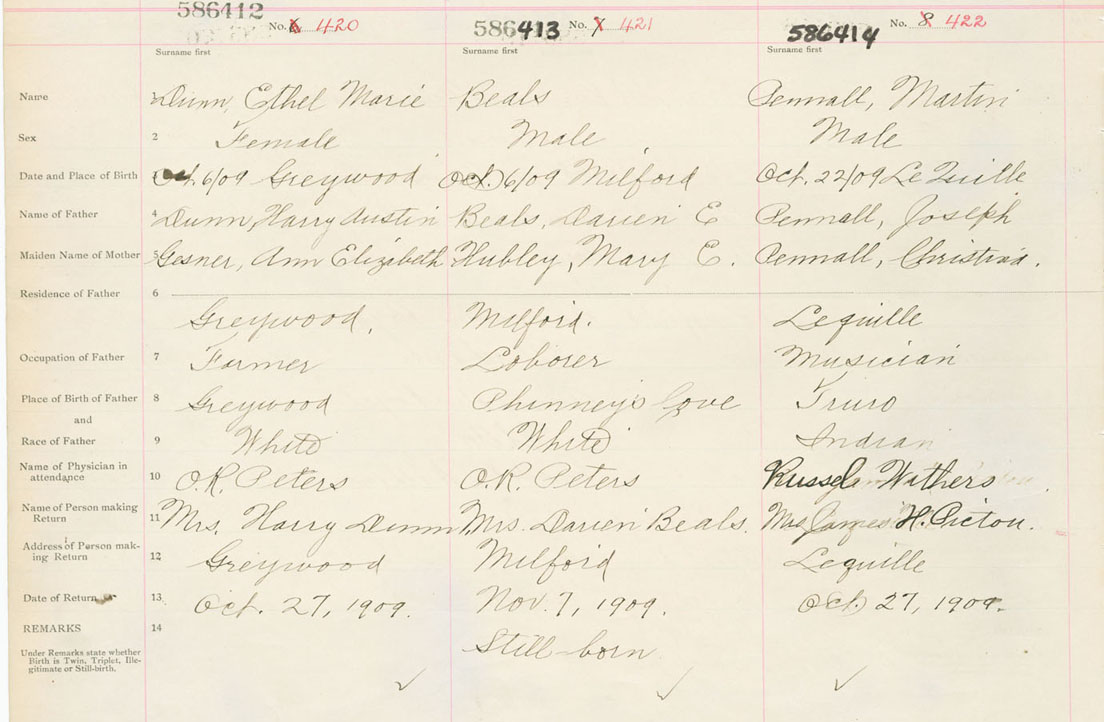 586412 No. 6 420 586413 No. 7 421 586414 No. 8 422
Surname first Surname first Surname first
Name Dunn, Ethel Marie Beals Pennall, Martin
Sex 2 Female Male Male
Date and Place of Birth Oct. 6/09 Greywood Oct. 6/09 Milford Oct. 22/09 LeQuille
Name of Father 4 Dunn, Harry Austin Beals, Darien E Pennall, Joseph
Maiden Name of Mother 5 Gesner, Ann Elizabeth Hubley, Mary E. Pennall, Christina.
Residence of Father 6
Greywood, Milford. Lequille
Occupation of Father 7 Farmer Laborer Musician
Place of Birth of Father 8 Greywood Phinney's Cove Truro
and
Race of Father 9 White White Indian
Name of Physician in
attendance 10 O.R. Peters O.R. Peters Russel Wathers
Name of Person making
Return 11 Mrs. Harry Dunn Mrs. Darien Beals. Mrs James H. Picton.
Address of Person mak-
ing Return 12 Greywood Milford Lequille
Date of Return 13 Oct. 27, 1909. Nov. 7, 1909. Oct. 27, 1909.
REMARKS 14
Under Remarks state whether
Birth is Twin, Triplet, Ille-
gitimate or Still-birth.
Still-born